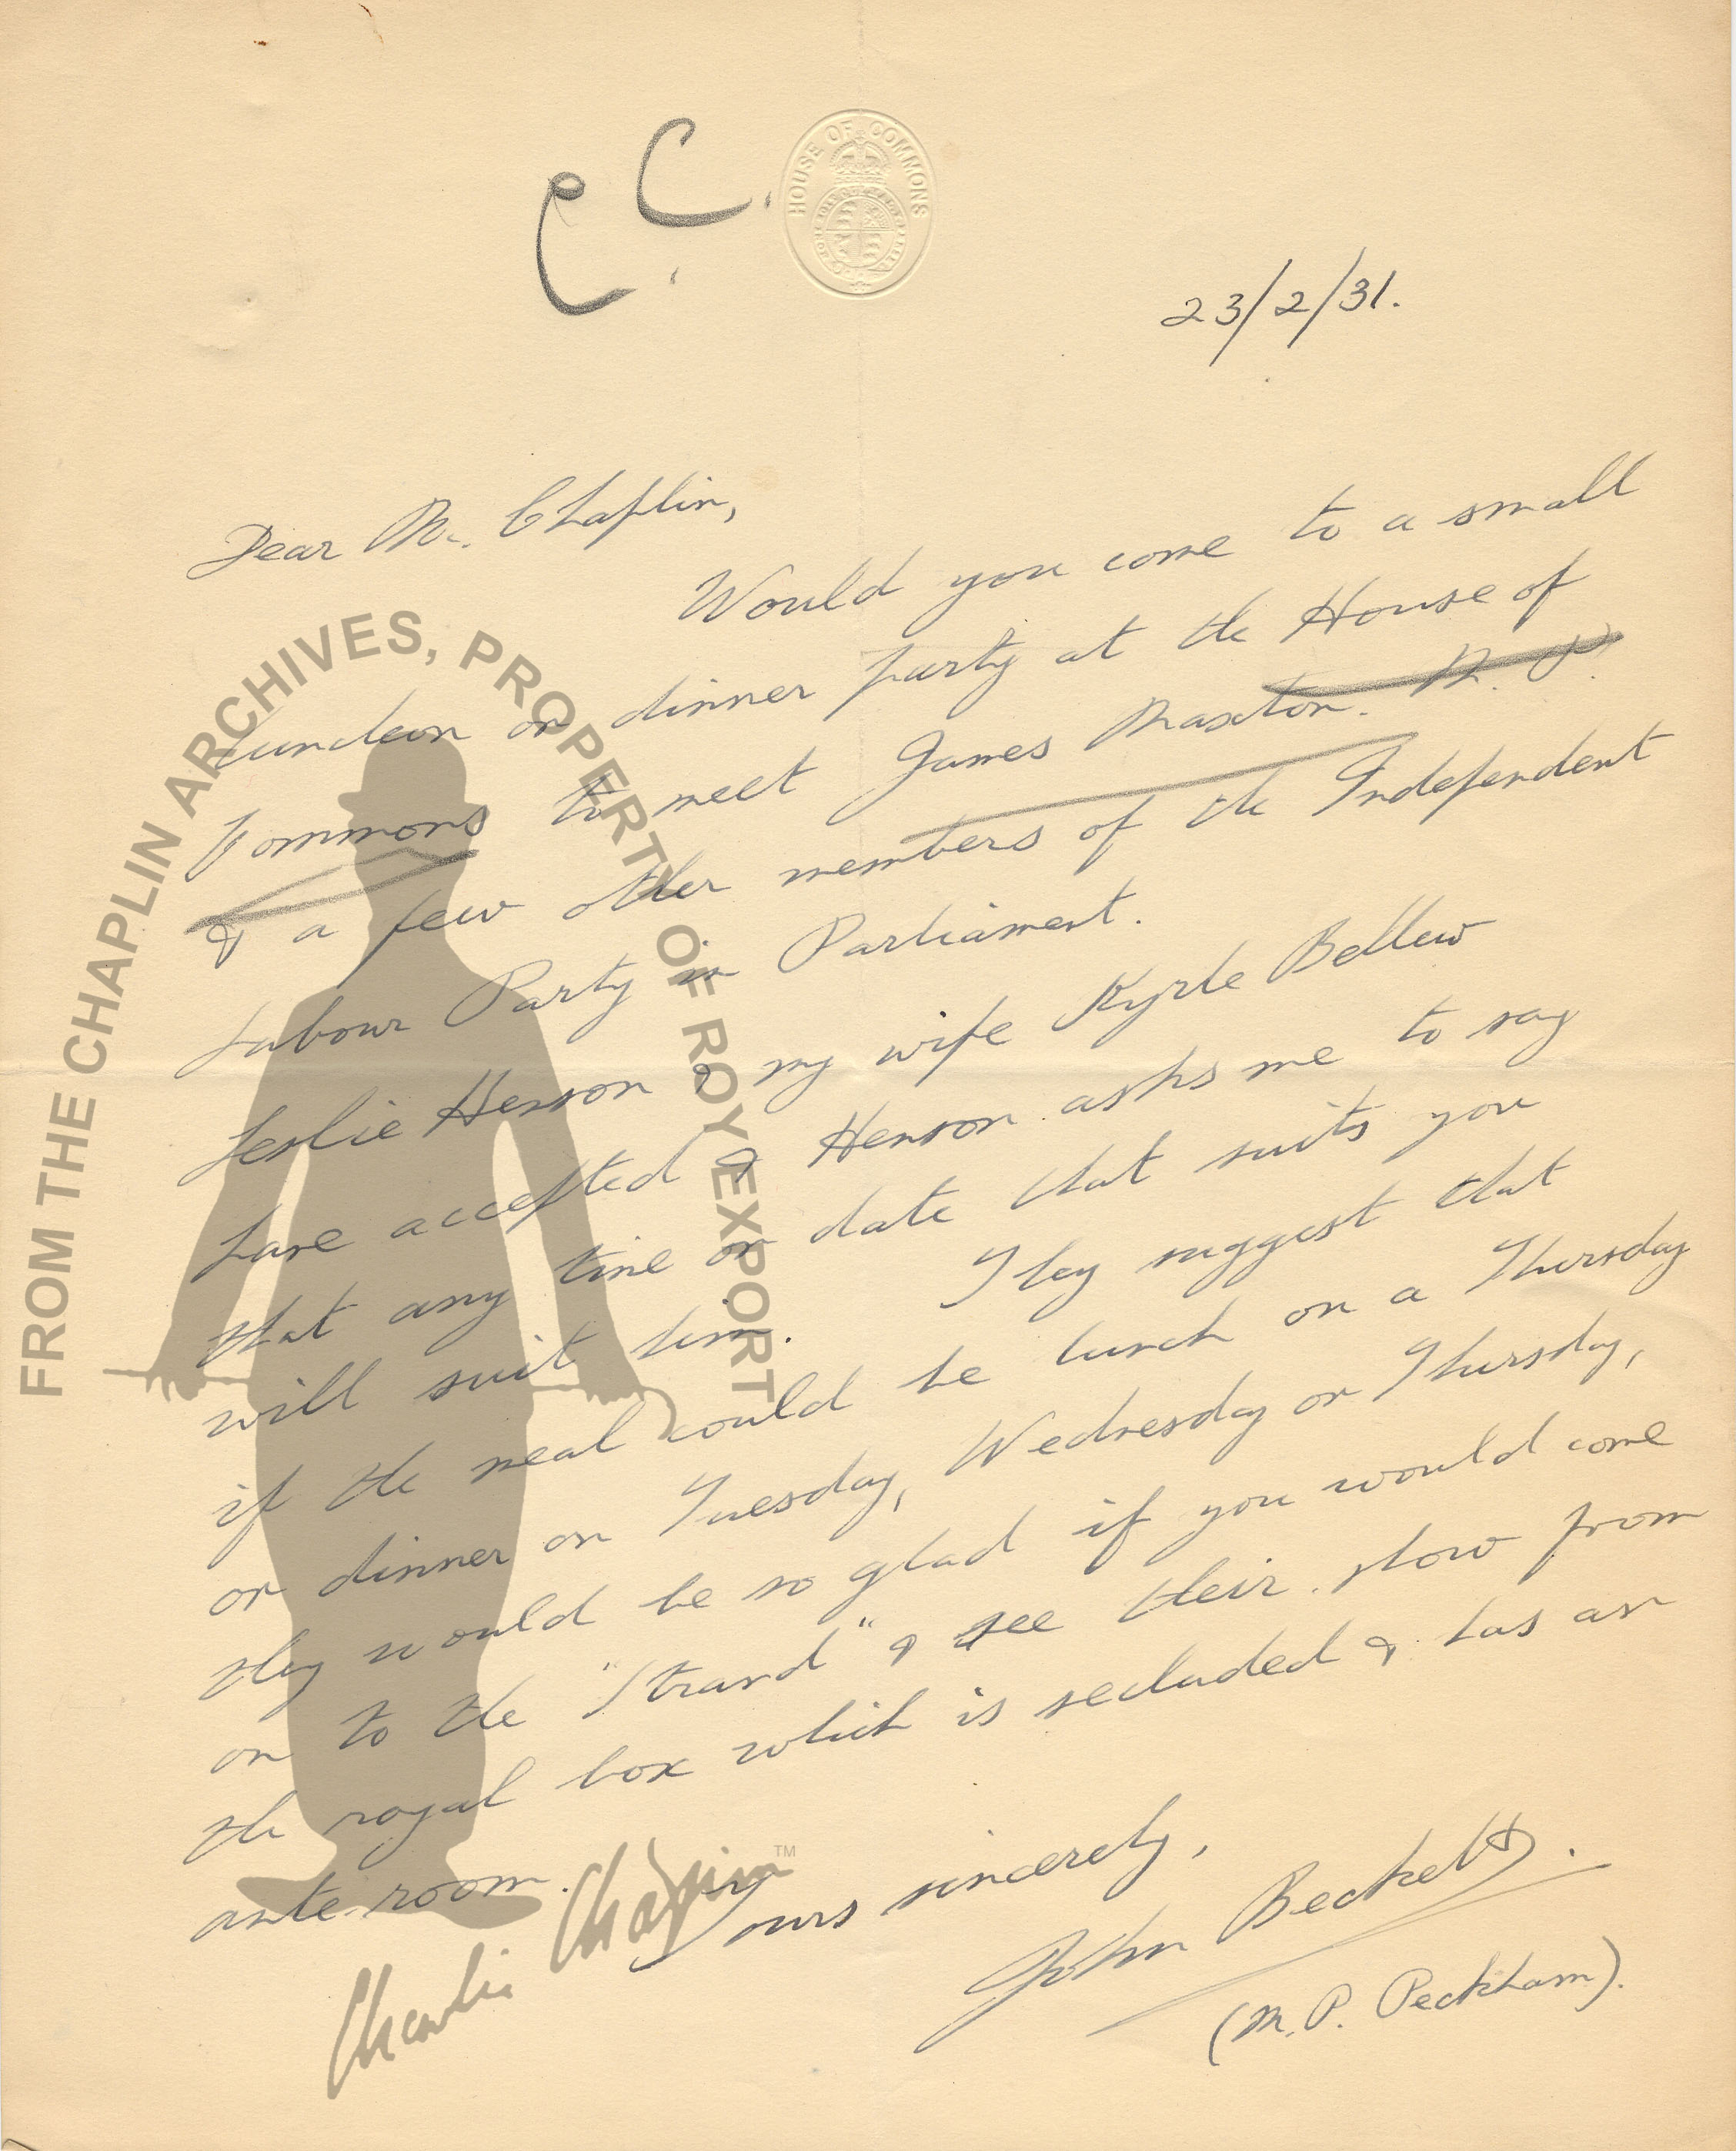 C C.
HOUSE OF COMMONS
23/2/31.
Dear Mr. Chaplin,
Would you come to a small
luncheon or dinner party at the House of
Commons to meet James Maxton. M. P.
& a few other members of the Independent
Labour Party in Parliament.
Leslie Henson & my wife Kyrle Bellew
have accepted & Henson asks me to say
that any time or date that suits you
will suit him. They suggest that
if the meal could be lunch on a Thursday
or dinner on Tuesday, Wednesday or Thursday,
they would be so glad if you would come
on to the "Strand" & see their show from
the royal box which is secluded & has an
ante-room.
Yours sincerely,
John Beckett.
(M.P. Peckham).
FROM THE CHAPLIN ARCHIVES, PROPERTY OF ROY EXPORT
Charlie Chaplin TM